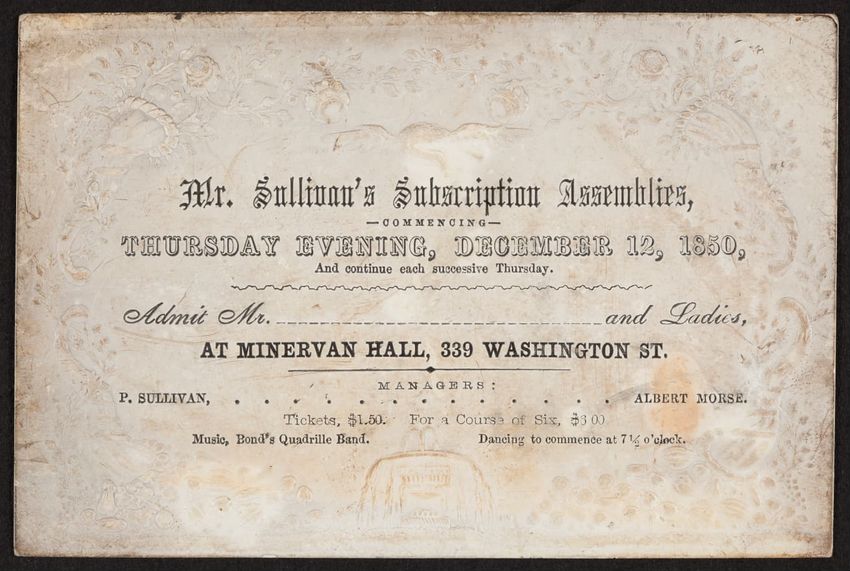 Mr. Sullivan's Subscription Assemblies,
—COMMENCING—
THURSDAY EVENING, DECEMBER 12, 1850,
And continue each successive Thursday.
Admit Mr. ____________________ and Ladies,
AT MINERVAN HALL, 339 WASHINGTON ST.
MANAGERS:
P. SULLIVAN, . . . . . . . . . . . . . ALBERT MORSE.
Tickets, $1.50. For a Course of Six, $6 00
Music, Bond's Quadrille Band. Dancing to commence at 7½ o'clock.